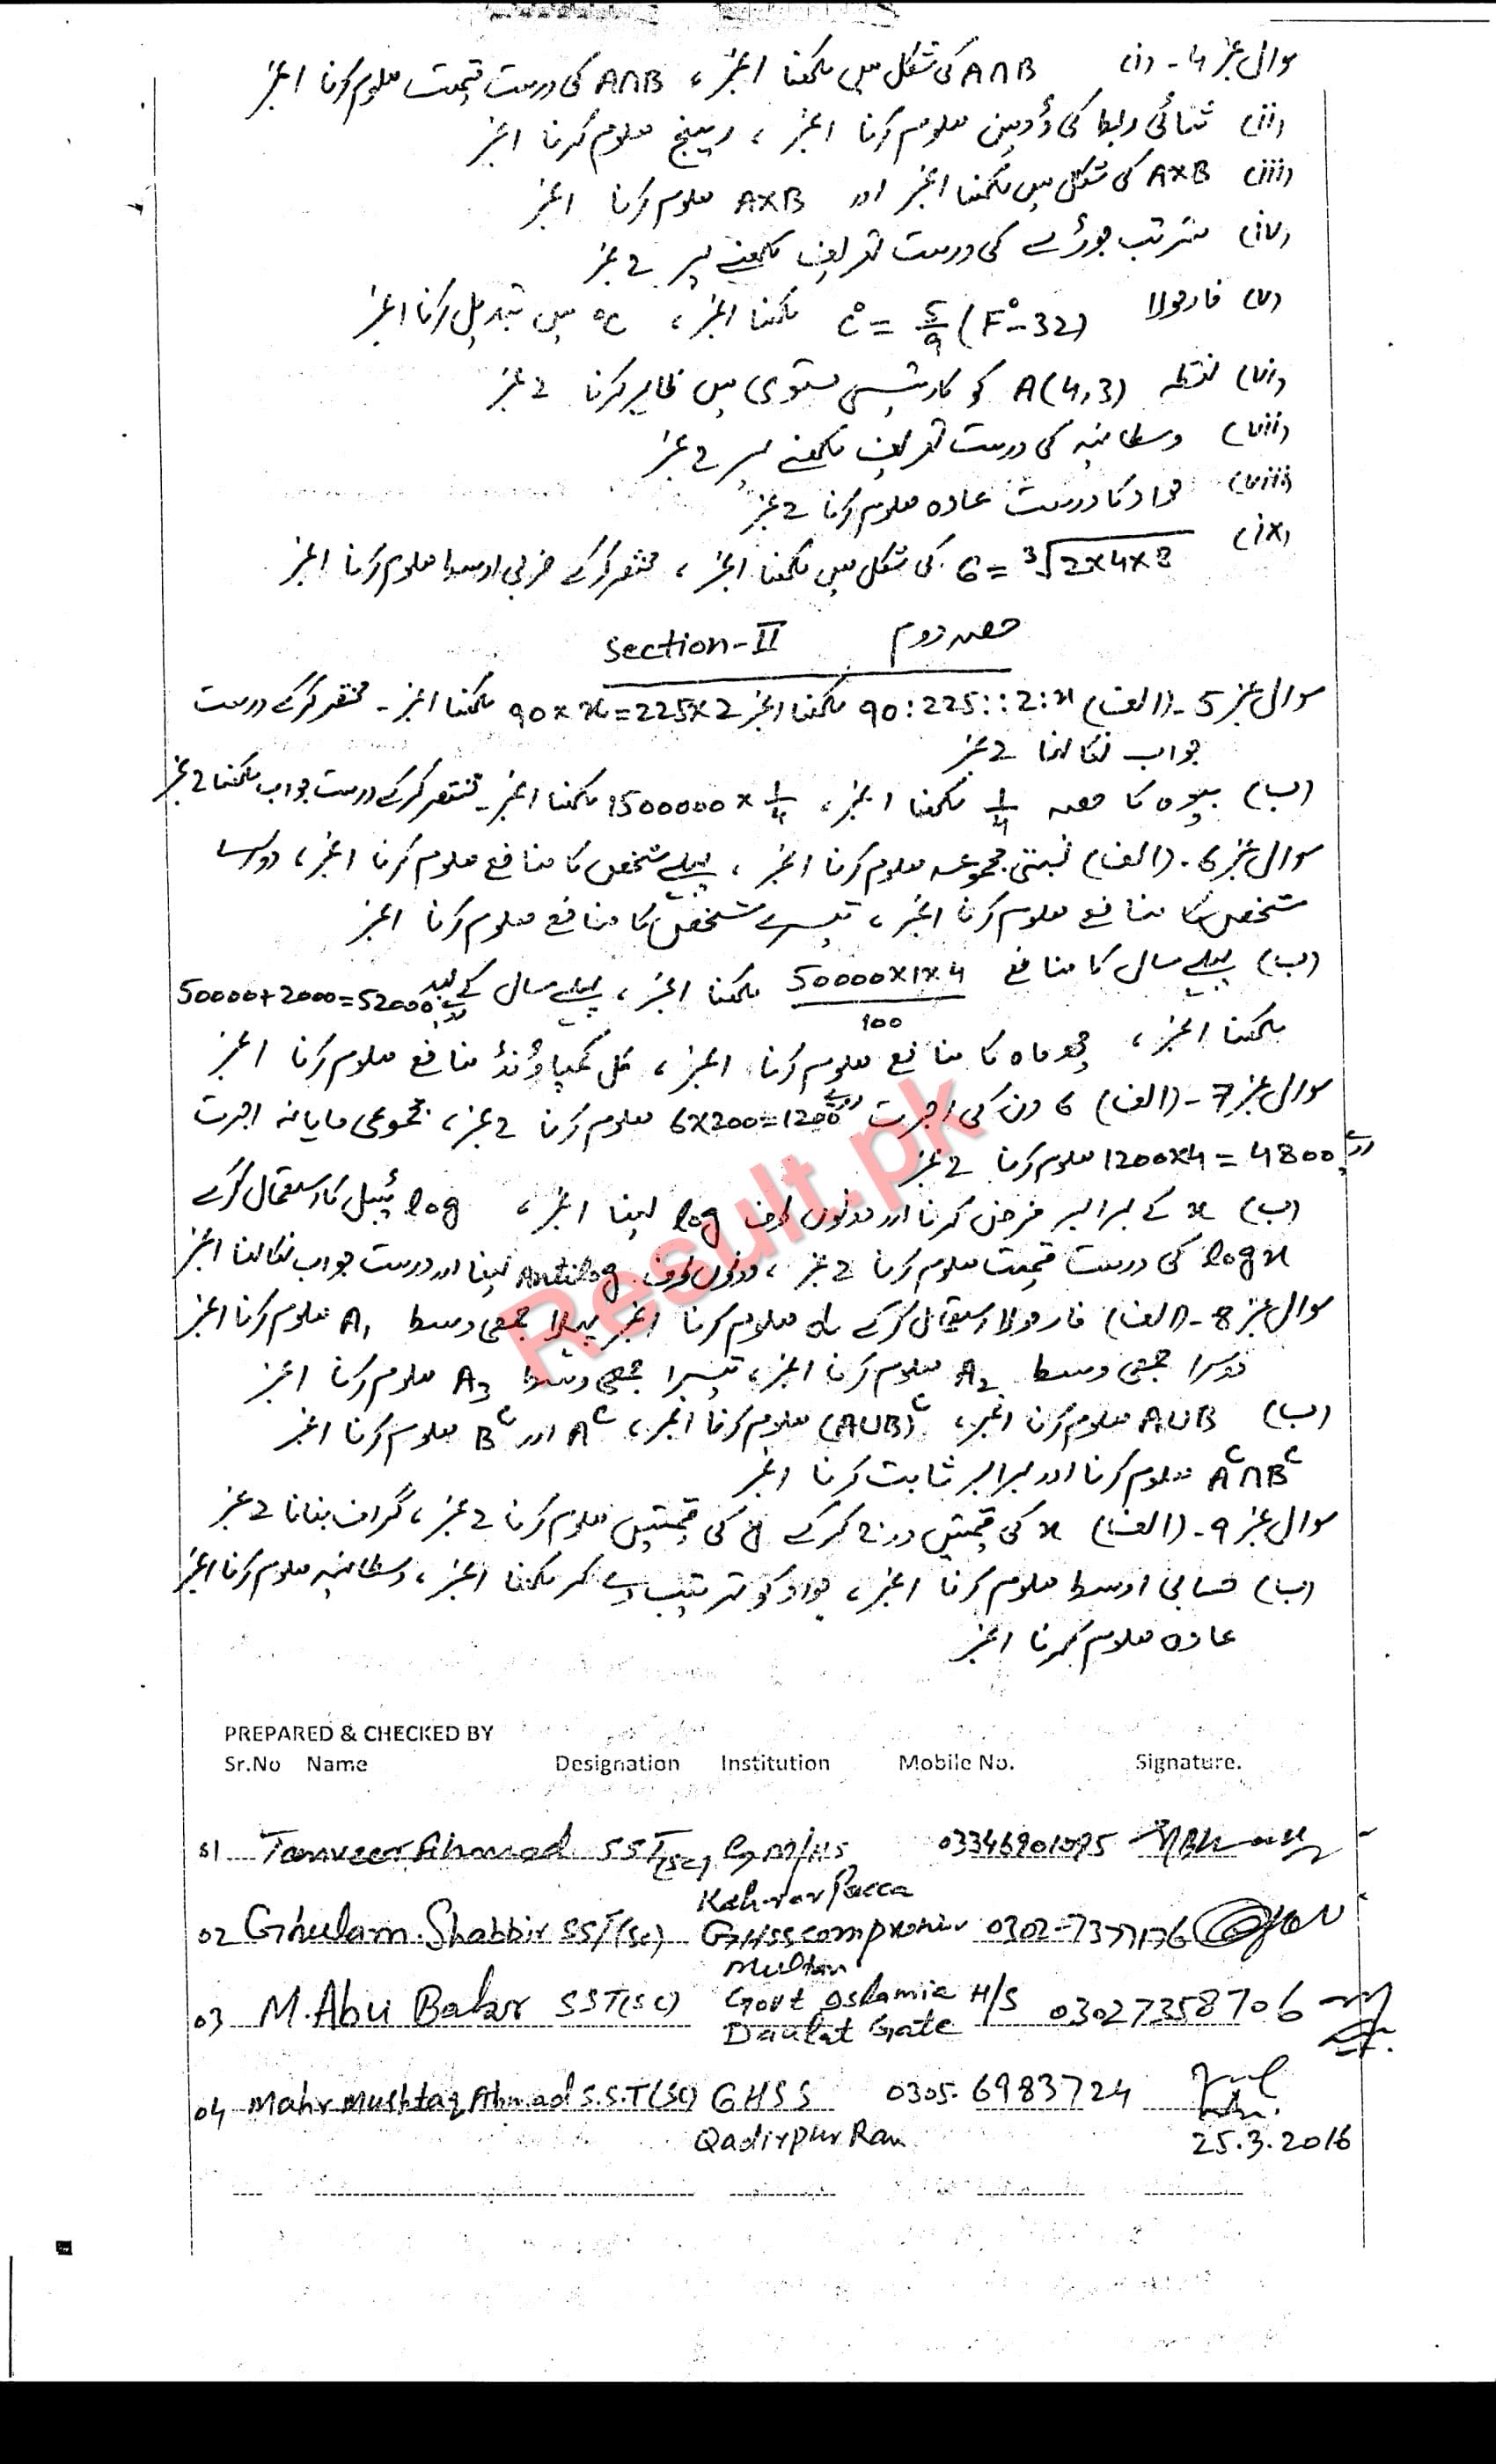 سوال نمبر 4 - (i) A∩B کی شکل میں لکھنا 1نمبر ، A∩B کی درست قیمت معلوم کرنا 1نمبر
(ii) ثنائی ربط کی ڈومین معلوم کرنا 1نمبر ، رینج معلوم کرنا 1نمبر
(iii) A×B کی شکل میں لکھنا 1نمبر اور A×B معلوم کرنا 1نمبر
(iv) مترتب جوڑے کی درست تعریف لکھنے پر 2نمبر
(v) فارمولا C° = 5/9 (F°-32) لکھنا 1نمبر ، °C میں تبدیل کرنا 1نمبر
(vi) نقطہ A(4,3) کو کارتیسی مستوی میں ظاہر کرنا 2نمبر
(vii) وسطانیہ کی درست تعریف لکھنے پر 2نمبر
(viii) مواد کا درست عادہ معلوم کرنا 2نمبر
(ix) G = ³√2×4×8 کی شکل میں لکھنا 1نمبر ، مختصر کرکے ضربی اوسط معلوم کرنا 1نمبر
حصہ دوم Section-II
سوال نمبر 5 - (الف) 90:225::2:x لکھنا 1نمبر 90×x=225×2 لکھنا 1نمبر - مختصر کرکے درست
جواب نکالنا 2نمبر
(ب) بیوہ کا حصہ 1/4 لکھنا 1نمبر ، 1500000 × 1/4 لکھنا 1نمبر - مختصر کرکے درست جواب لکھنا 2نمبر
سوال نمبر 6 - (الف) نسبتی مجموعہ معلوم کرنا 1نمبر ، پہلے شخص کا منافع معلوم کرنا 1نمبر ، دوسرے
شخص کا منافع معلوم کرنا 1نمبر ، تیسرے شخص کا منافع معلوم کرنا 1نمبر
(ب) پہلے سال کا منافع 50000×1×4/100 لکھنا 1نمبر ، پہلے سال کے بعد 50000+2000=52000 روپے
لکھنا 1نمبر ، چھ ماہ کا منافع معلوم کرنا 1نمبر ، کل کمپاؤنڈ منافع معلوم کرنا 1نمبر
سوال نمبر 7 - (الف) 6 دن کی اجرت 6×200=1200 روپے معلوم کرنا 2نمبر ، مجموعی ماہانہ اجرت
1200×4 = 4800 روپے معلوم کرنا 2نمبر
(ب) x کے برابر فرض کرنا اور دونوں طرف log لینا 1نمبر ، log ٹیبل کا استعمال کرکے
log x کی درست قیمت معلوم کرنا 2نمبر ، دونوں طرف Antilog لینا اور درست جواب نکالنا 1نمبر
سوال نمبر 8 - (الف) فارمولا استعمال کرکے d معلوم کرنا 1نمبر پہلا جمعی وسط A₁ معلوم کرنا 1نمبر
دوسرا جمعی وسط A₂ معلوم کرنا 1نمبر ، تیسرا جمعی وسط A₃ معلوم کرنا 1نمبر
(ب) A∪B معلوم کرنا 1نمبر ، (A∪B)ᶜ معلوم کرنا 1نمبر ، Aᶜ اور Bᶜ معلوم کرنا 1نمبر
Aᶜ∩Bᶜ معلوم کرنا اور برابر ثابت کرنا 1نمبر
سوال نمبر 9 - (الف) x کی قیمتیں درج کرکے y کی قیمتیں معلوم کرنا 2نمبر ، گراف بنانا 2نمبر
(ب) حسابی اوسط معلوم کرنا 1نمبر ، مواد کو ترتیب دے کر لکھنا 1نمبر ، وسطانیہ معلوم کرنا 1نمبر
عادہ معلوم کرنا 1نمبر
Result.pk
PREPARED & CHECKED BY
Sr.No Name Designation Institution Mobile No. Signature.
01 Tanveer Ahmad SST(Sc) G M/HS 03346901095
Kahror Pacca
02 Ghulam Shabbir SST(Sc) GHSS comprehensive 0302-7377176
Multan
03 M. Abu Bakar SST(SC) Govt Islamia H/S 03027358706
Daulat Gate
04 Mahr Mushtaq Ahmad S.S.T(SC) GHSS 0305-6983724
Qadirpur Ran 25.3.2016